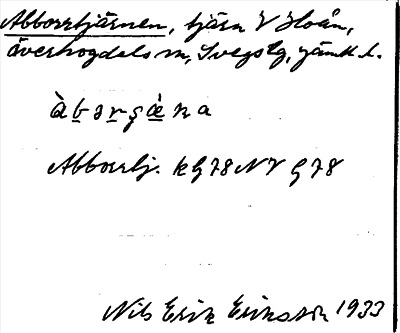 Abborrtjärnen, tjärn V Hoån,
överhogdals sn, Svegs tg, jämtl. l.
àbərşæ̀na
Abborrtj. kG78NV G78
Nils Erik Eriksson 1933